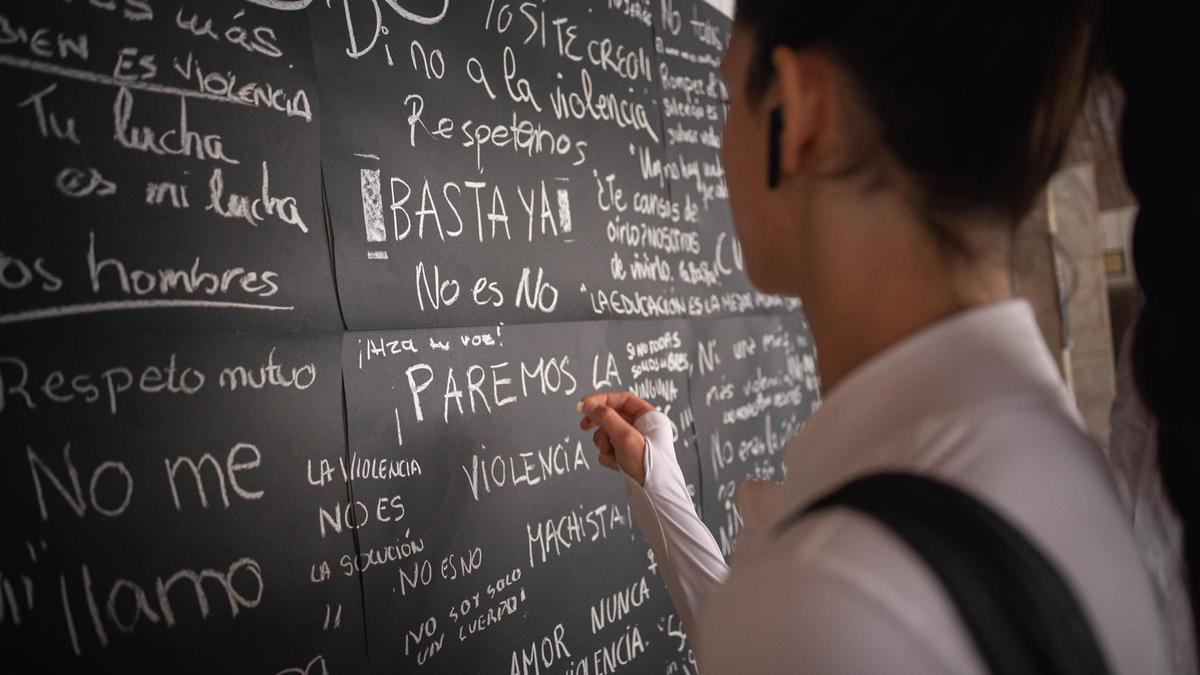 más.
BIEN
ES VIOLENCIA
Tu lucha
es mi lucha
os hombres
Respeto mutuo
No me
llamo
LA VIOLENCIA
NO ES
LA SOLUCIÓN
"
YO SI TE CREO!!
Di no a la violencia
Respetanos
¡BASTA YA!
No es No
¿Te cansas de
oirlo? NOSOTRAS
de vivirlo.
"LA EDUCACIÓN ES LA MEJOR
¡Alza tu voz!
¡PAREMOS LA
VIOLENCIA
MACHISTA!
SI NO TODAS
SOMOS LIBRES,
NINGUNA
NO ES NO
¡NO SOY SOLO
UN CUERPO!
AMOR NUNCA
VIOLENCIA.
No
Romper el
Ni una más
más violencia
No